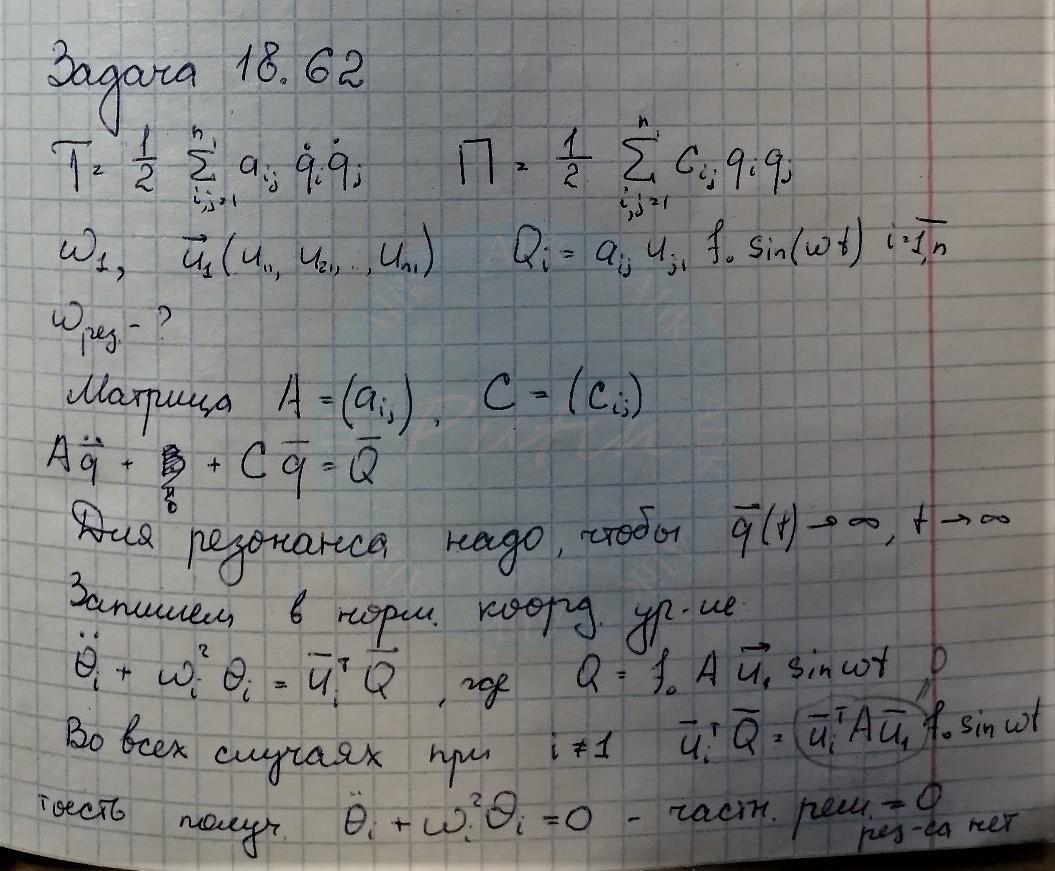 Задача 18.62
T = 1/2 ∑ⁿᵢ,ⱼ₌₁ aᵢⱼ q̇ᵢ q̇ⱼ П = 1/2 ∑ⁿᵢ,ⱼ₌₁ cᵢⱼ qᵢ qⱼ
ω₁, u⃗₁(u₁₁, u₂₁, .., uₙ₁) Qᵢ = aᵢⱼ uⱼ₁ f₀ sin(ωt) i=1,n
ω рез. - ?
Матрица A = (aᵢⱼ), C = (cᵢⱼ)
A q̈ + + C q̄ = Q̄
0
Для резонанса надо, чтобы q̄(t) → ∞, t → ∞
Запишем в норм. коорд. ур-ие
θ̈ᵢ + ωᵢ² θᵢ = ūᵢᵀ Q̄, где Q = f₀ A u⃗₁ sin ωt 0
Во всех случаях при i ≠ 1 ūᵢᵀ Q̄ = ūᵢᵀ A ū₁ f₀ sin ωt
тоесть получ. θ̈ᵢ + ωᵢ² θᵢ = 0 - частн. реш. = 0
рез-са нет